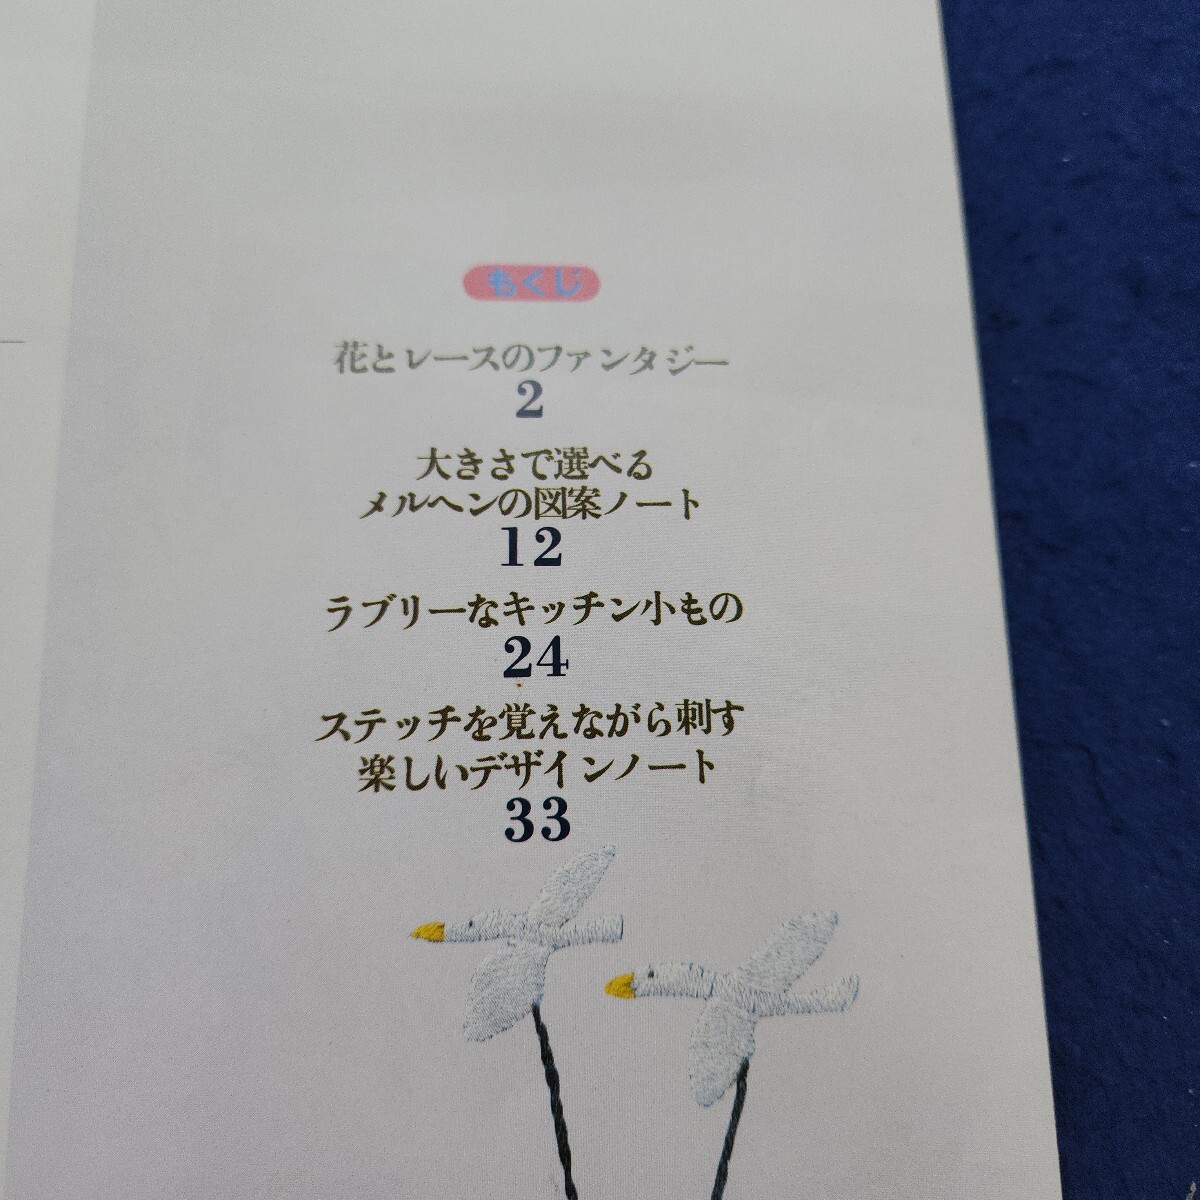 もくじ
花とレースのファンタジー
2
大きさで選べる
メルヘンの図案ノート
12
ラブリーなキッチン小もの
24
ステッチを覚えながら刺す
楽しいデザインノート
33